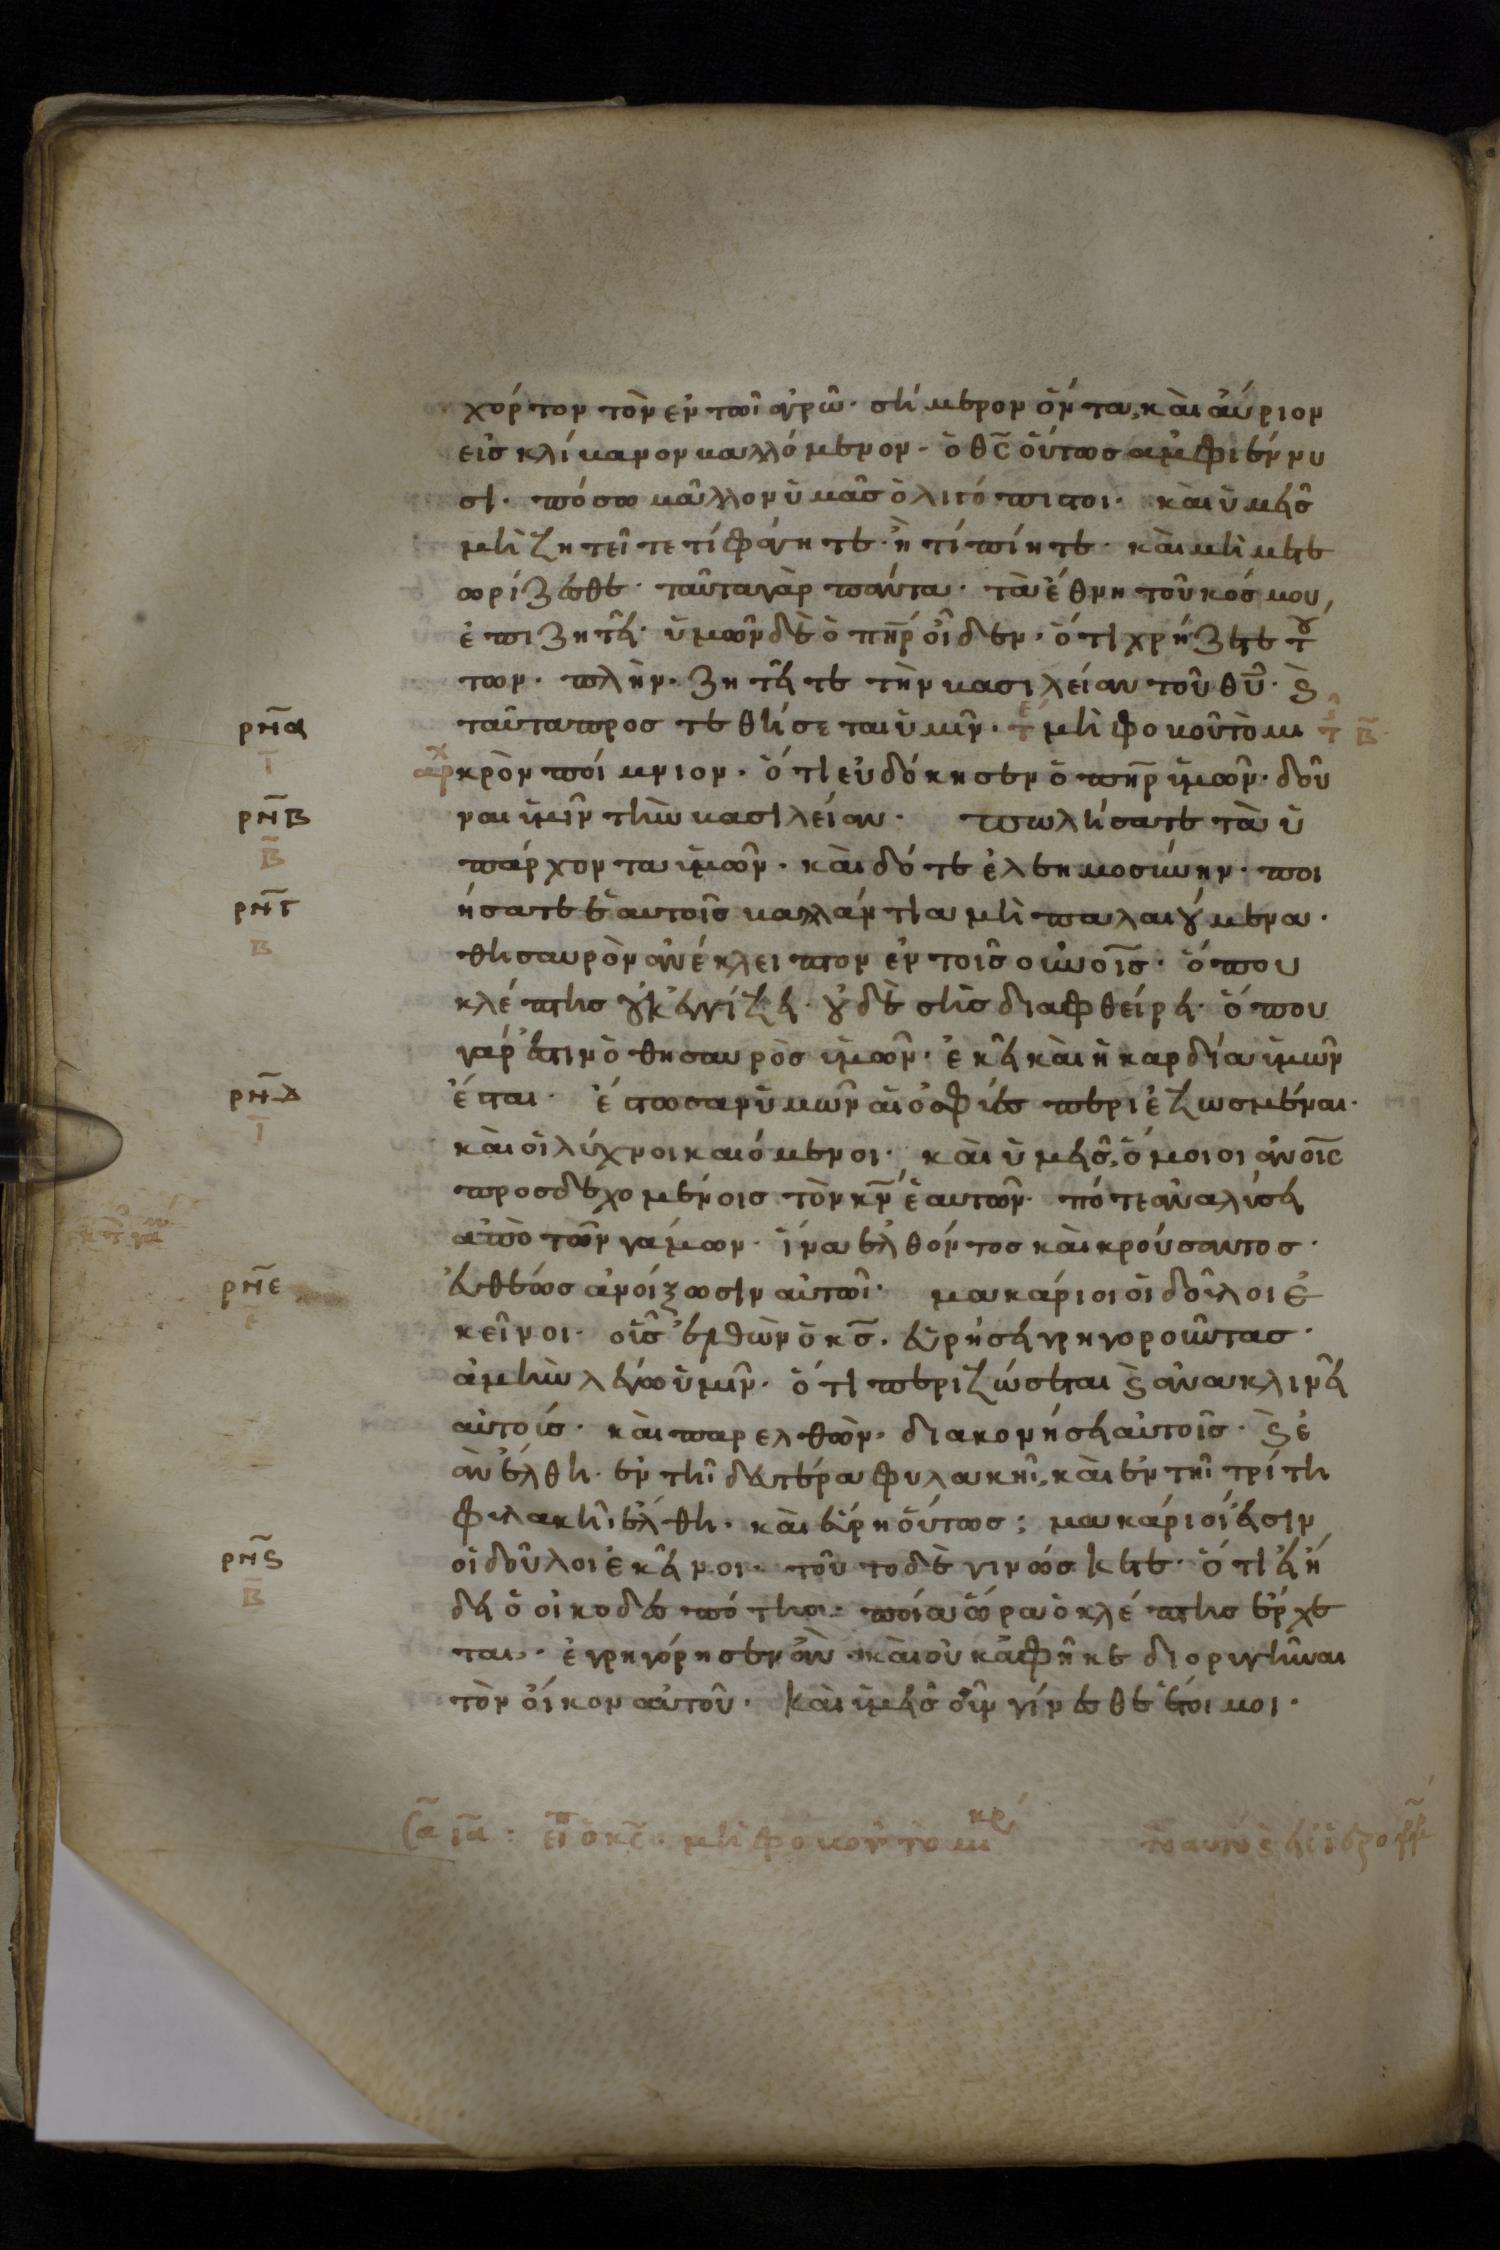 χόρτον τὸν ἐν τῶι ἀγρῶ· σήμερον ὄντα, καὶ αὔριον
εἰσ κλίβανον βαλλόμενον· ὁ θς̅ οὕτωσ ἀμφιέννυ
σι· πόσω μᾶλλον ὑμᾶσ ὀλιγόπιστοι· καὶ ὑμεῖσ
μὴ ζητεῖτε τί φάγητε· ἢ τί πίητε· καὶ μὴ μετε
ωρίζεσθε· ταῦτα γὰρ πάντα· τὰ ἔθνη τοῦ κόσμου,
ἐπιζητεῖ· ὑμῶν δὲ ὁ πη̅ρ οἶδεν· ὅτι χρήζετε τού
των· πλὴν· ζητεῖτε τὴν βασιλείαν τοῦ θυ̅· ϗ
ταῦτα προστεθήσεται ὑμῖν· τε μὴ φοβοῦ τὸ μι
αρχ κρὸν ποίμνιον· ὅτι εὐδόκησεν ὁ πη̅ρ ὑμῶν· δοῦ
ναι ὑμῖν τὴν βασιλείαν· πωλήσατε τὰ ὑ
πάρχοντα ὑμῶν· καὶ δότε ἐλεημοσύνην· ποι
ήσατε ἑαυτοῖσ βαλλάντια μὴ παλαιούμενα·
θησαυρὸν ἀνέκλειπτον ἐν τοῖσ οὐνοῖσ· ὅπου
κλέπτησ οὐκ ἐγγίζει· οὐδὲ σὴσ διαφθείρει· ὅπου
γάρ ἐστιν ὁ θησαυρὸσ ὑμῶν· ἐκεῖ καὶ ἡ καρδία ὑμῶν
ἔσται· ἔστωσαν ὑμῶν αἱ ὀσφύεσ περιεζωσμέναι·
καὶ οἱ λύχνοι καιόμενοι· καὶ ὑμεῖσ, ὅμοιοι ἀνοις̅
προσδεχομένοισ τὸν κν̅ ἑαυτῶν· πότε ἀναλύσει
ἀπὸ τῶν γάμων· ἵνα ἐλθόντοσ καὶ κρούσαντοσ·
εὐθέωσ ἀνοίξωσιν αὐτῶι· μακάριοι οἱ δοῦλοι ἐ
κεῖνοι· οἷσ ἐλθὼν ὁ κσ̅· εὑρήσει γρηγοροῦντασ·
ἀμὴν λέγω ὑμῖν· ὅτι περιζώσεται ϗ ἀνακλινεῖ
αὐτούσ· καὶ παρελθὼν· διακονήσει αὐτοῖσ· ϗ ἐ
ὰν ἔλθη· ἐν τῆι δευτέρα φυλακῆι, καὶ ἐν τῆι τρίτη
φυλακῆι, ἔλθη· καὶ εὕρη οὕτωσ; μακάριοί εἰσιν
οἱ δοῦλοι ἐκεῖνοι· τοῦτο δὲ γινώσκετε· ὅτι εἰ ἤ
δει ὁ οἰκοδεσπότησ· ποία ὥρα ὁ κλέπτησ ἔρχε
ται· ἐγρηγόρησεν ἂν· καὶ οὐκ ἀφῆκε διορυγῆναι
τὸν οἶκον αὐτοῦ· καὶ ὑμεῖσ οὖν γίνεσθε ἕτοιμοι·
ρν̅α
ρν̅β
β̅
ρν̅γ
β
ρν̅δ
ρν̅ε
ρν̅ς
β
εἶπ ὁ κς̅· μὴ φοβοῦ τὸ μικρό